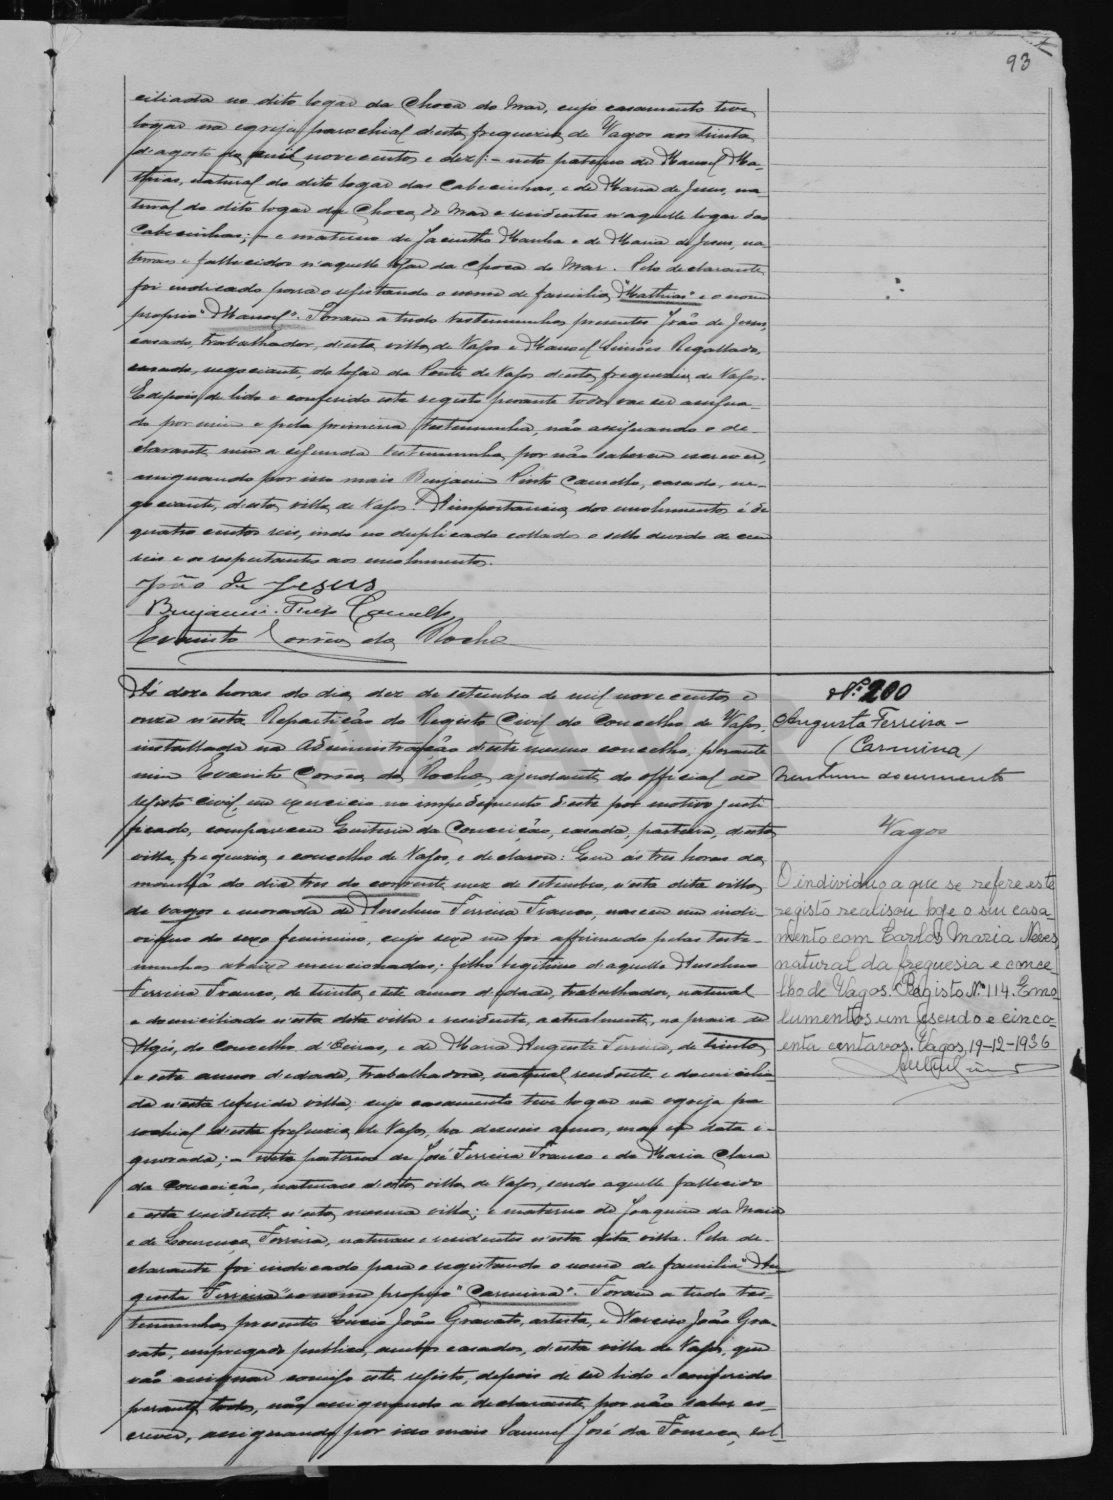 93
ciliada no dito logar da Choca do Mar, cujo casamento teve
logar na egreja parochial d'esta freguezia de Vagos aos trinta
d'agosto de mil novecentos e dez; - neto paterno de Manoel Ma-
thias, natural do dito logar das Cabecinhas, e de Maria de Jesus, na
tural do dito logar da Choca do Mar e residentes n'aquelle logar das
Cabecinhas; - e materno de Jacintho Manha e de Maria de Jesus, na
turaes e fallecidos n'aquelle logar da Choca do Mar. Pelo declarante
foi indicado para o registando o nome de familia "Mathias" e o nome
proprio "Manoel". Foram a tudo testemunhas presentes João de Jesus,
casado, trabalhador, d'esta villa de Vagos e Manoel Simões Regallado,
casado, negociante, do logar da Ponte de Vagos d'esta freguezia de Vagos.
E depois de lido e conferido este registo perante todos vae ser assigna-
do por mim e pela primeira testemunha, não assignando o de-
clarante nem a segunda testemunha, por não saberem escrever,
assignando por isso mais Benjamin Pinto Camello, casado, ne-
gociante, d'esta villa de Vagos. A importancia dos emolumentos é de
quatro centos reis, indo no duplicado collados o sello devido de cem
reis e os respeitantes aos emolumentos.
João de Jesus
Benjamin Pinto Camello
Evaristo Corrêa da Rocha
Ás doze horas do dia dez de setembro de mil novecentos e
onze n'esta Repartição do Registo Civil do Concelho de Vagos,
installada na Administração d'este mesmo concelho, perante
mim Evaristo Corrêa da Rocha, ajudante do official do
registo civil, em exercicio no impedimento d'este por motivo justi
ficado, compareceu Quiteria da Conceição, casada, parteira, d'esta
villa, freguezia e concelho de Vagos, e declarou: Que ás tres horas da
manhã do dia tres do corrente mez de setembro, n'esta dita villa
de Vagos e morada de Anselmo Ferreira Franco, nasceu um indi-
viduo do sexo feminino, cujo sexo me foi affirmado pelas teste-
munhas abaixo mencionadas; filho legitimo d'aquelle Anselmo
Ferreira Franco, de trinta e sete annos d'edade, trabalhador, natural
e domiciliado n'esta dita villa e residente, actualmente, na praia de
Algés, do concelho d'Oeiras, e de Maria Augusta Ferreira, de trinta
e sete annos d'edade, trabalhadora, natural residente e domicilia-
da n'esta referida villa; cujo casamento teve logar na egreja pa
rochial d'esta freguezia de Vagos, ha dezeseis annos, mas em data i-
gnorada; - neto paterno de José Ferreira Franco e de Maria Clara
da Conceição, naturaes d'esta villa de Vagos, sendo aquelle fallecido
e esta residente n'esta mesma villa; e materno de Joaquim da Maia
e de Lourença Ferreira, naturaes e residentes n'esta dita villa. Pela de-
clarante foi indicado para o registando o nome de familia "Au-
gusta Ferreira" e o nome proprio "Carmina". Foram a tudo tes-
temunhas presentes Lucio João Gravato, artista, e Narciso João Gra-
vato, empregado publico, ambos casados, d'esta villa de Vagos, que
vão assignar comigo este registo, depois de ser lido e conferido
perante todos, não assignando a declarante, por não saber es-
crever, assignando por isso mais Samuel José da Fonseca, sol-
Nº 200
Augusta Ferreira -
(Carmina)
Nenhum documento
Vagos
O individuo a que se refere este
registo realisou hoje o seu casa-
mento com Carlos Maria Neves,
natural da freguesia e conce-
lho de Vagos. Registo Nº 114. Emo-
lumentos um escudo e cinco-
enta centavos. Vagos, 19-12-1936